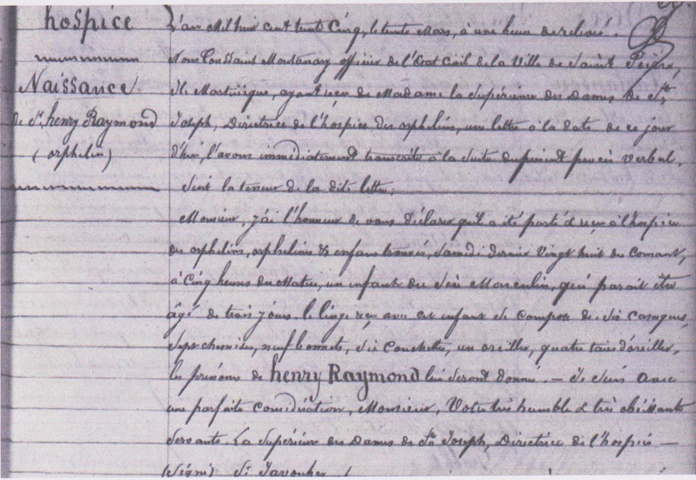 hospice
Naissance
de St henry Raymond
(orphelin)
L'an Mil huit cent trente Cinq, le trente Mars, à une heure de relevée.
Nous Toussaint officier de l'Etat Civil de la Ville de Saint Pierre,
Ile Martinique, ayant reçu de Madame la Supérieure des Dames de St
Joseph, Directrice de l'hospice des orphelins, une lettre à la date de ce jour
d'hui l'avons immédiatement transcrite à la Suite du présent procès verbal.
Suit la teneur de la dite lettre.
Monsieur, j'ai l'honneur de vous déclarer qu'il a été porté & reçu à l'hospice
des orphelins, orphelines & enfans trouvés, Samedi dernier Vingt huit du Courant,
à Cinq heures du Matin, un enfant du Sexe Masculin, qui parait être
âgé de trois jours. le linge reçu avec cet enfant Se Compose de Six
Sept chemises, neuf bonnets, Six Couchettes, un oreiller, quatre taies d'oreiller,
les prénoms de henry Raymond lui Seront donné. — Je Suis avec
une parfaite Considération, Monsieur, Votre très humble & très obéissante
Servante. La Supérieure des Dames de St Joseph, Directrice de l'hospice —
(Signé) Sr